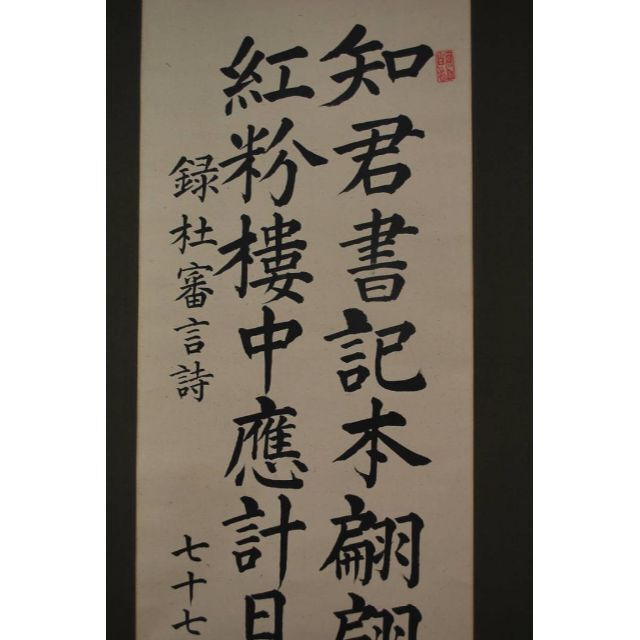 知君書記本翩翩
紅粉樓中應計日
録杜審言詩
七十七